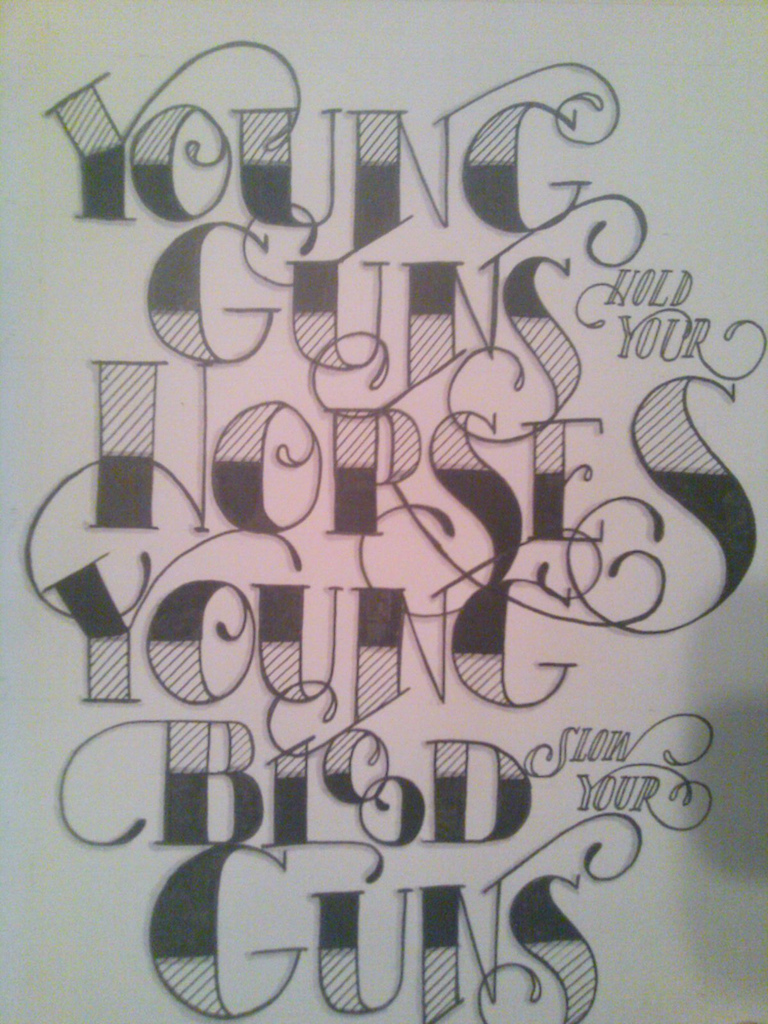 YOUNG
GUNS
HOLD
YOUR
HORSES
YOUNG
BLOOD
SLOW
YOUR
GUNS